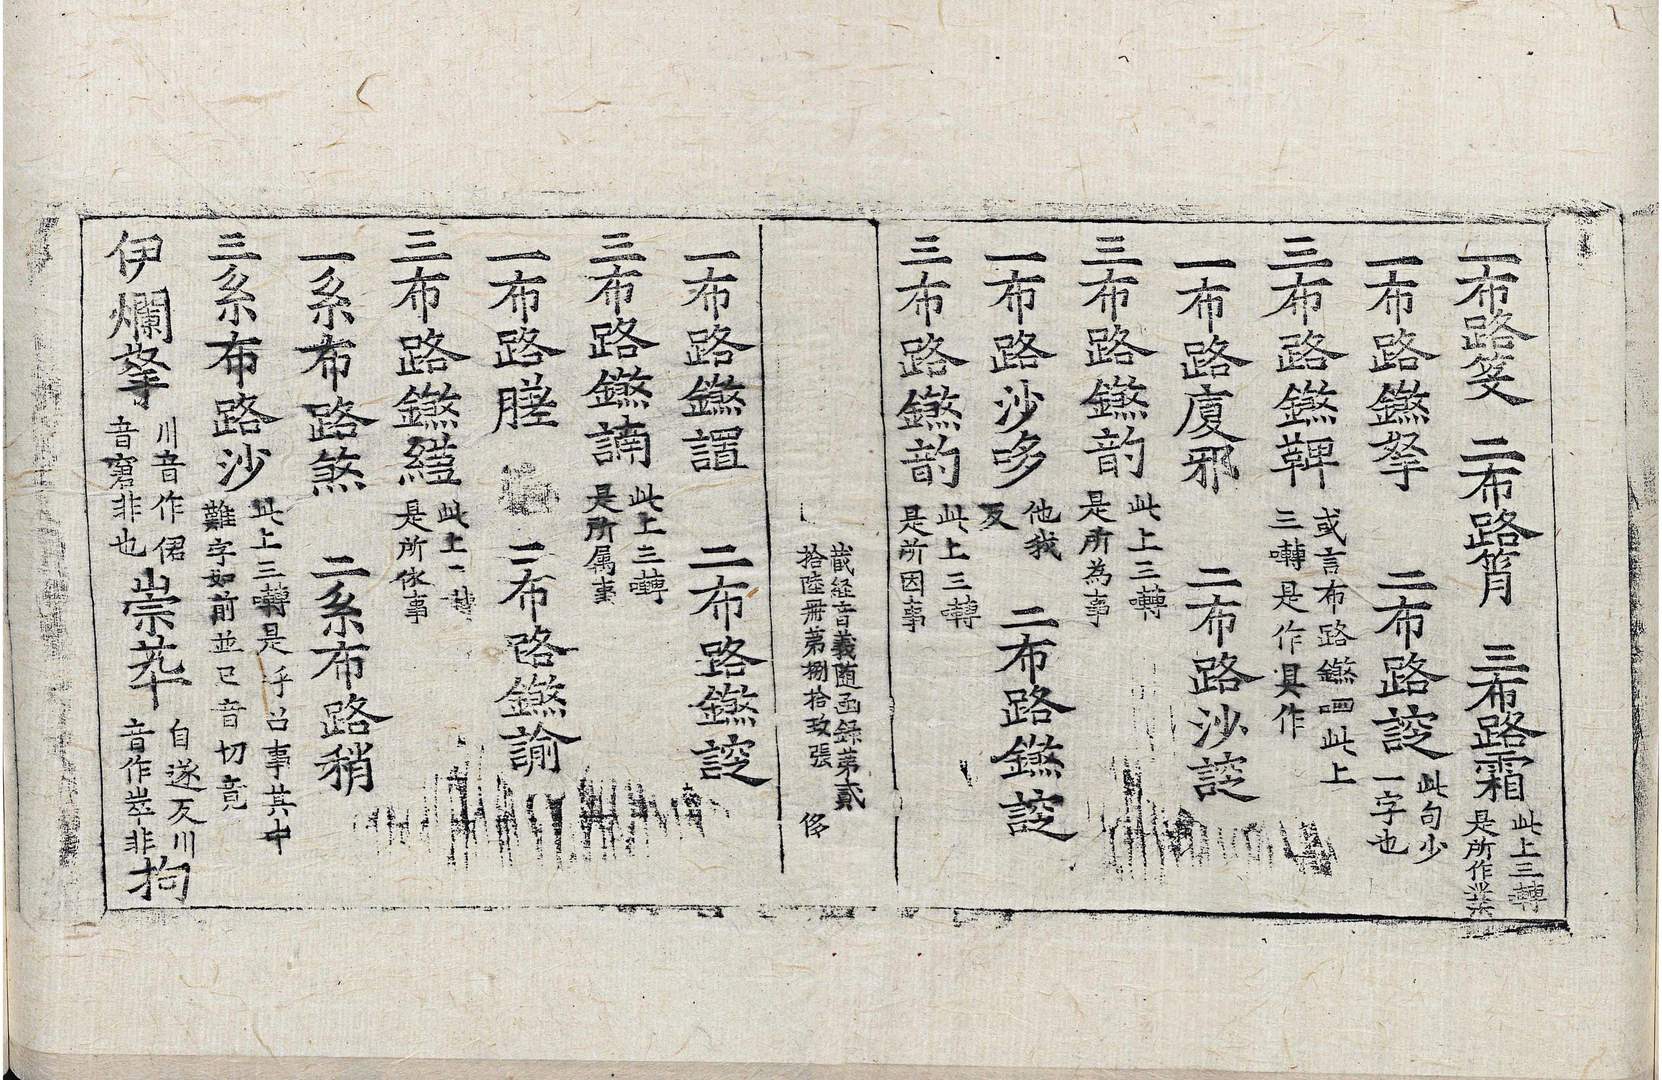 一布路笅　二布路筲　三布路霜　此上三轉是所作業
一布路鑑拏　二布路誜　此句少一字也
三布路鑑鞞　或言布路鑑𠴨此上三囀是作具作
一布路廈邪　二布路沙誜
三布路鑑韵　此上三囀是所為事
一布路沙哆　他我反　二布路鑑誜
三布路鑑韵　此上三轉是所因事
藏経音義随函録第貳
拾陸冊第捌拾玖張　侈
一布路鑑　二布路鑑誜
三布路鑑諵　此上三囀是所属事
一布路　二布路鑑諭
三布路鑑　此上一轉是所依事
一系布路煞　二系布路稍
三系布路沙　此上三囀是乎召事其中難字如前並已音切竟
伊爛拏　川音作㑺音窘非也　崇萃　自遂反川音作崒非　拘